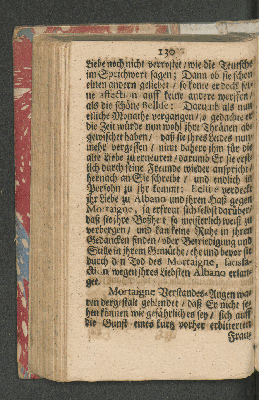 130
Liebe noch nicht verrostet / wie die Teutsche
im Sprichwort sagen; Dann ob sie schon
einen andern geliebet / so konte er doch sei-
ne affection auff keine andere werffen /
als die schöne Bellide: Darumb als nun
etliche Monathe vergangen / so gedachte er
die Zeit würde nun wohl ihre Thränen ab-
gewischet haben / daß sie ihres Leides nun
mehr vergessen / nimt dahero ihm für die
alte Liebe zu erneuren / darumb Er sie erst-
lich durch seine Freunde wieder anspricht /
hernach an Sie schreibe / und endlich in
Persohn zu ihr kommt: Bellide verdeckt
ihr Liebe zu Albano und ihren Haß gegen
Mortaigne, ja erfreut sich selbst darüber /
daß sie ihre Boßheit so meisterlich weiß zu
verbergen / und kan keine Ruhe in ihren
Gedancken finden / oder Befriedigung und
Stille in ihrem Gemüthe / ehe und bevor sie
durch den Tod des Mortaigne, satisfa-
ction wegen ihres Liebsten Albano erlan-
get.
Mortaigne Verstandes-Augen wa-
ren dergestalt geblendet / daß Er nicht se-
hen können wie gefährliches sey / sich auff
die Gunst eines kurtz vorher erbitterten
Frau-